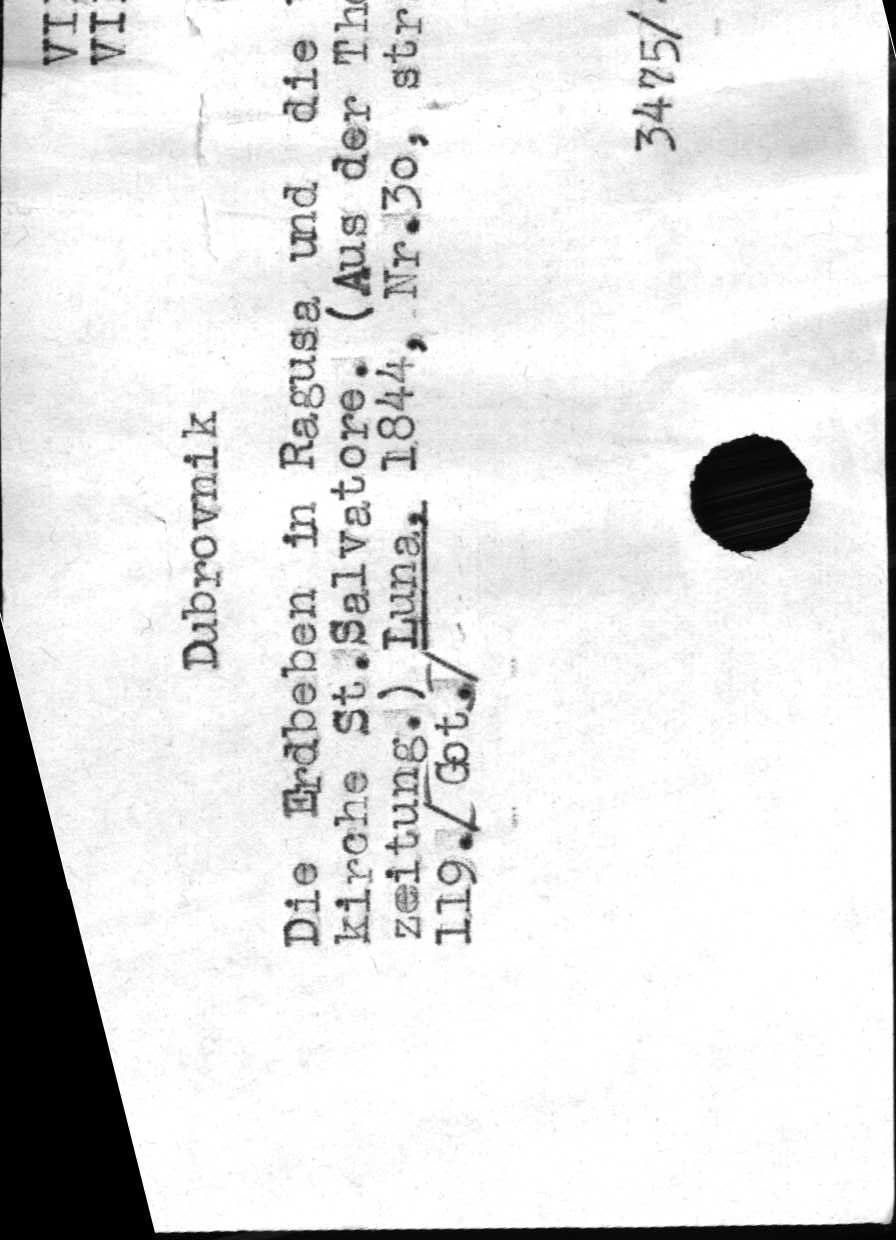 VI
VI
Dubrovnik
Die Erdbeben in Ragusa und die
kirche St.Salvatore. (Aus der The
zeitung.) Luna, 1844, Nr.30, str
119./Got./
3475/